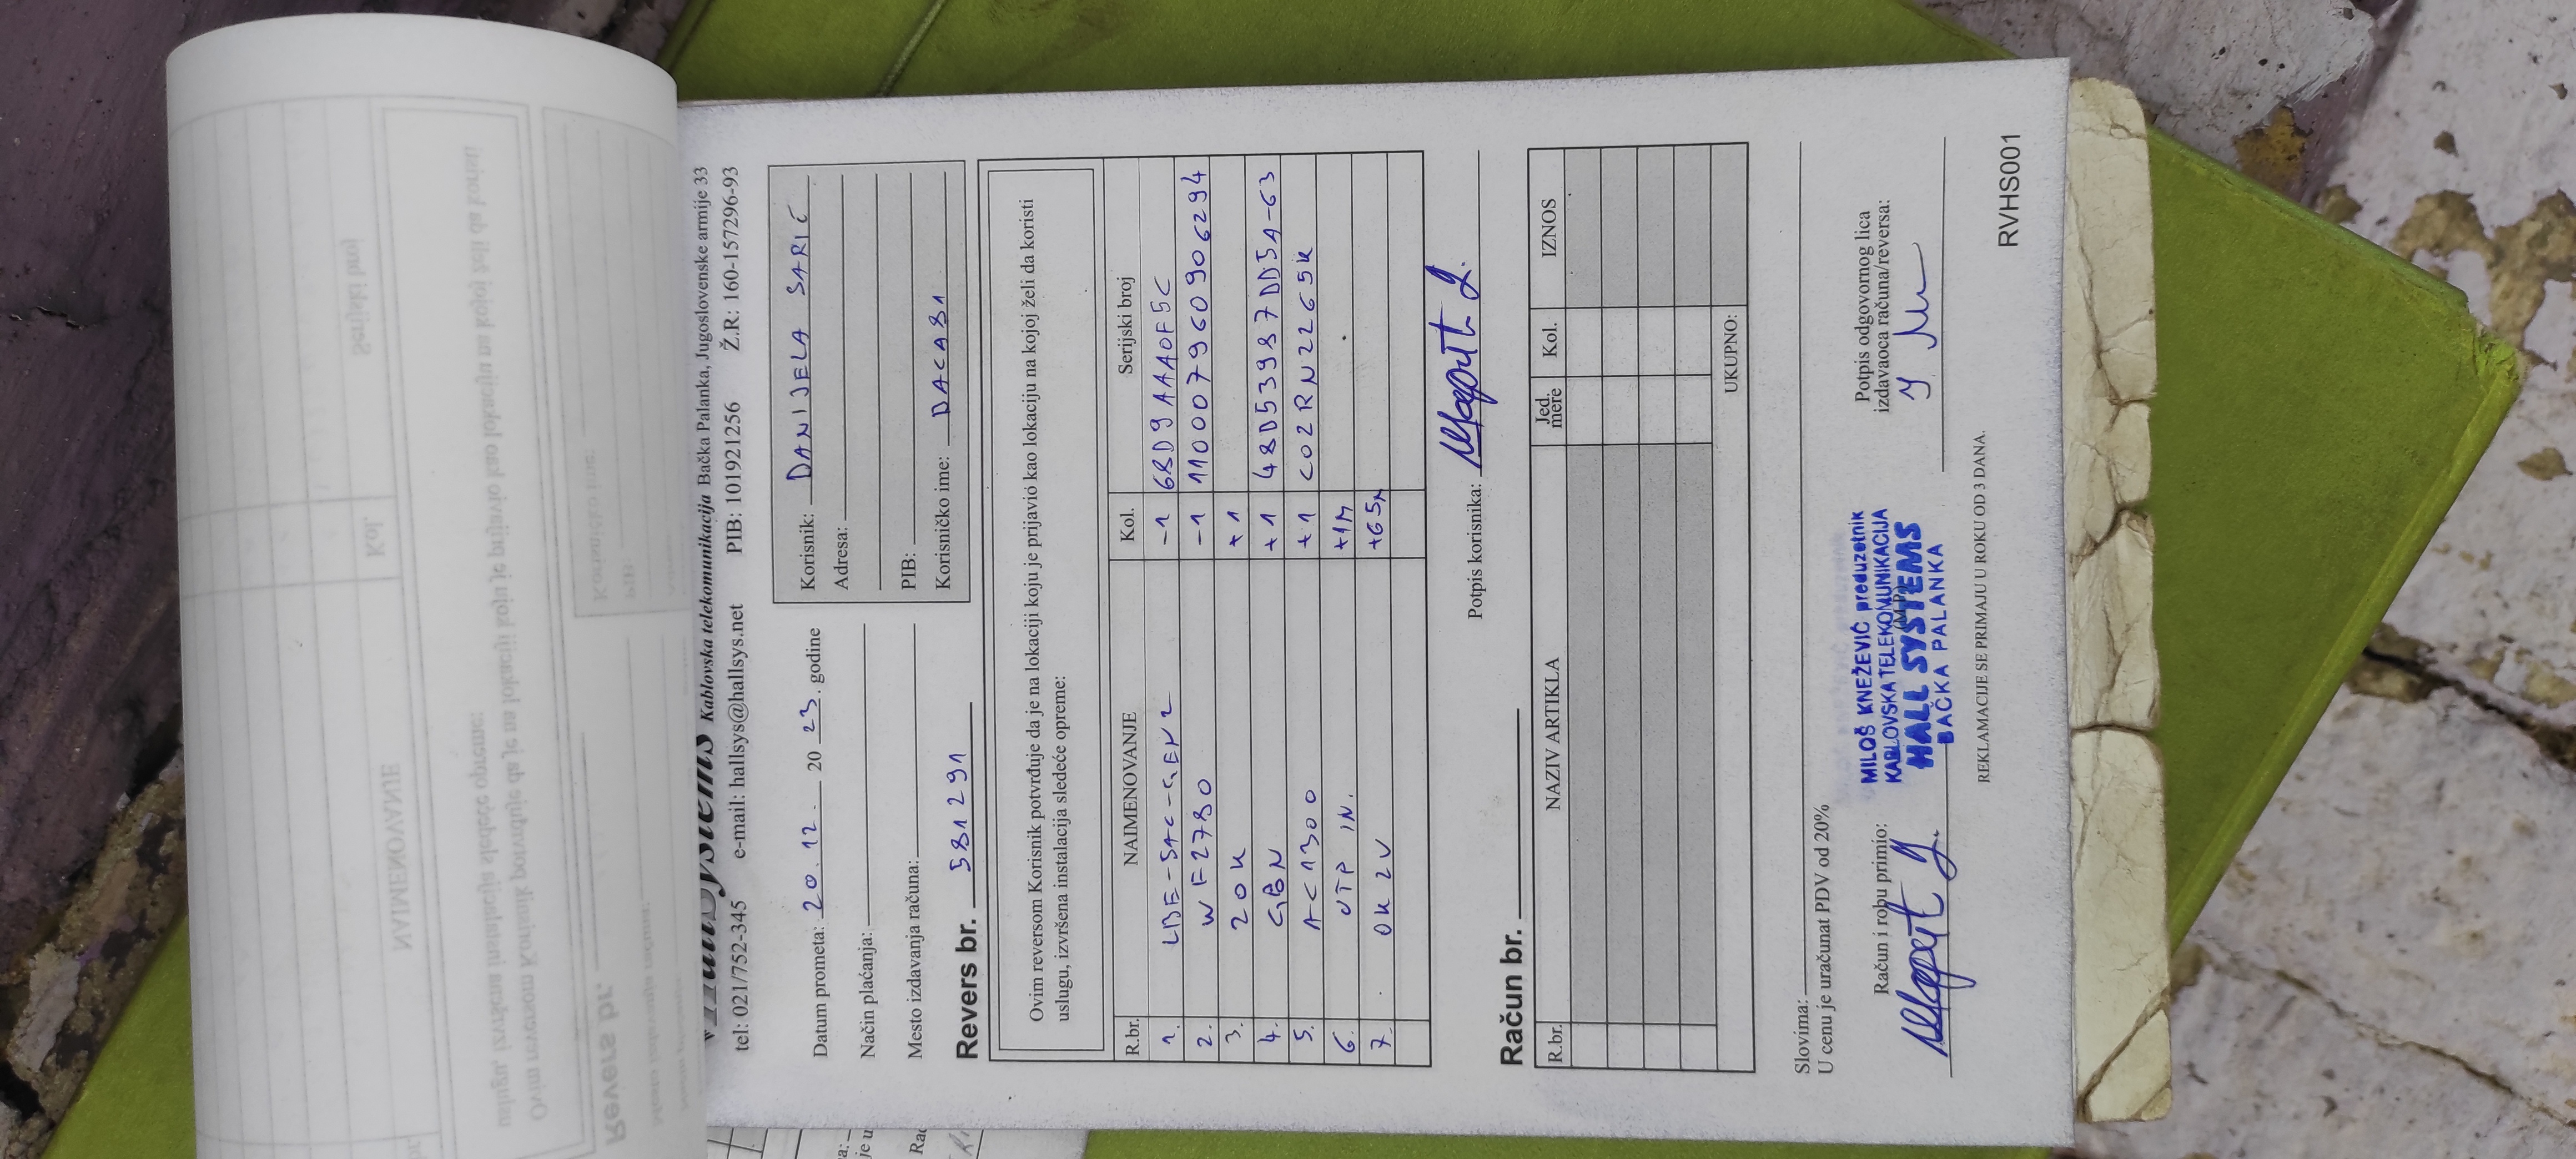 HallSystems Kablovska telekomunikacija Bačka Palanka, Jugoslovenske armije 33
tel: 021/752-345 e-mail: hallsys@hallsys.net PIB: 101921256 Ž.R: 160-157296-93
Datum prometa: 20.12. 20 23. godine
Način plaćanja:
Mesto izdavanja računa:
Korisnik: DANIJELA SARIĆ
Adresa:
PIB:
Korisničko ime: DACA81
Revers br. 581291
Ovim reversom Korisnik potvrđuje da je na lokaciji koju je prijavio kao lokaciju na kojoj želi da koristi
uslugu, izvršena instalacija sledeće opreme:
R.br. NAIMENOVANJE Kol. Serijski broj
1. LBE-5AC-GEN2 -1 68D9AAA0F5C
2. WF2780 -1 1100079609906294
3. 20K +1
4. GBN +1 48D53987DD5A-63
5. AC1300 +1 C02RN2265K
6. UTP IN. +1M
7. OK 2V +65M
Potpis korisnika:
Račun br.
R.br. NAZIV ARTIKLA Jed. mere Kol. IZNOS
UKUPNO:
Slovima:
U cenu je uračunat PDV od 20%
Račun i robu primio:
MILOŠ KNEŽEVIĆ preduzetnik
KABLOVSKA TELEKOMUNIKACIJA
HALL SYSTEMS
BAČKA PALANKA
Potpis odgovornog lica
izdavaoca računa/reversa:
REKLAMACIJE SE PRIMAJU U ROKU OD 3 DANA.
RVHS001